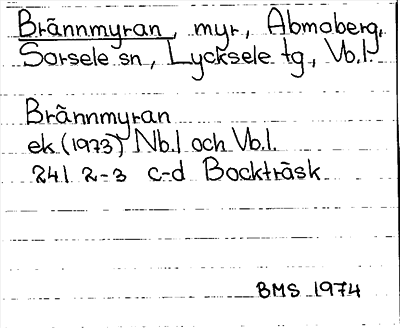 Brännmyran, myr, Abmoberg,
Sorsele sn, Lycksele tg, Vb.l.
Brännmyran
ek (1973) Nb.l och Vb.l.
24I 2-3 c-d Bockträsk
BMS 1974